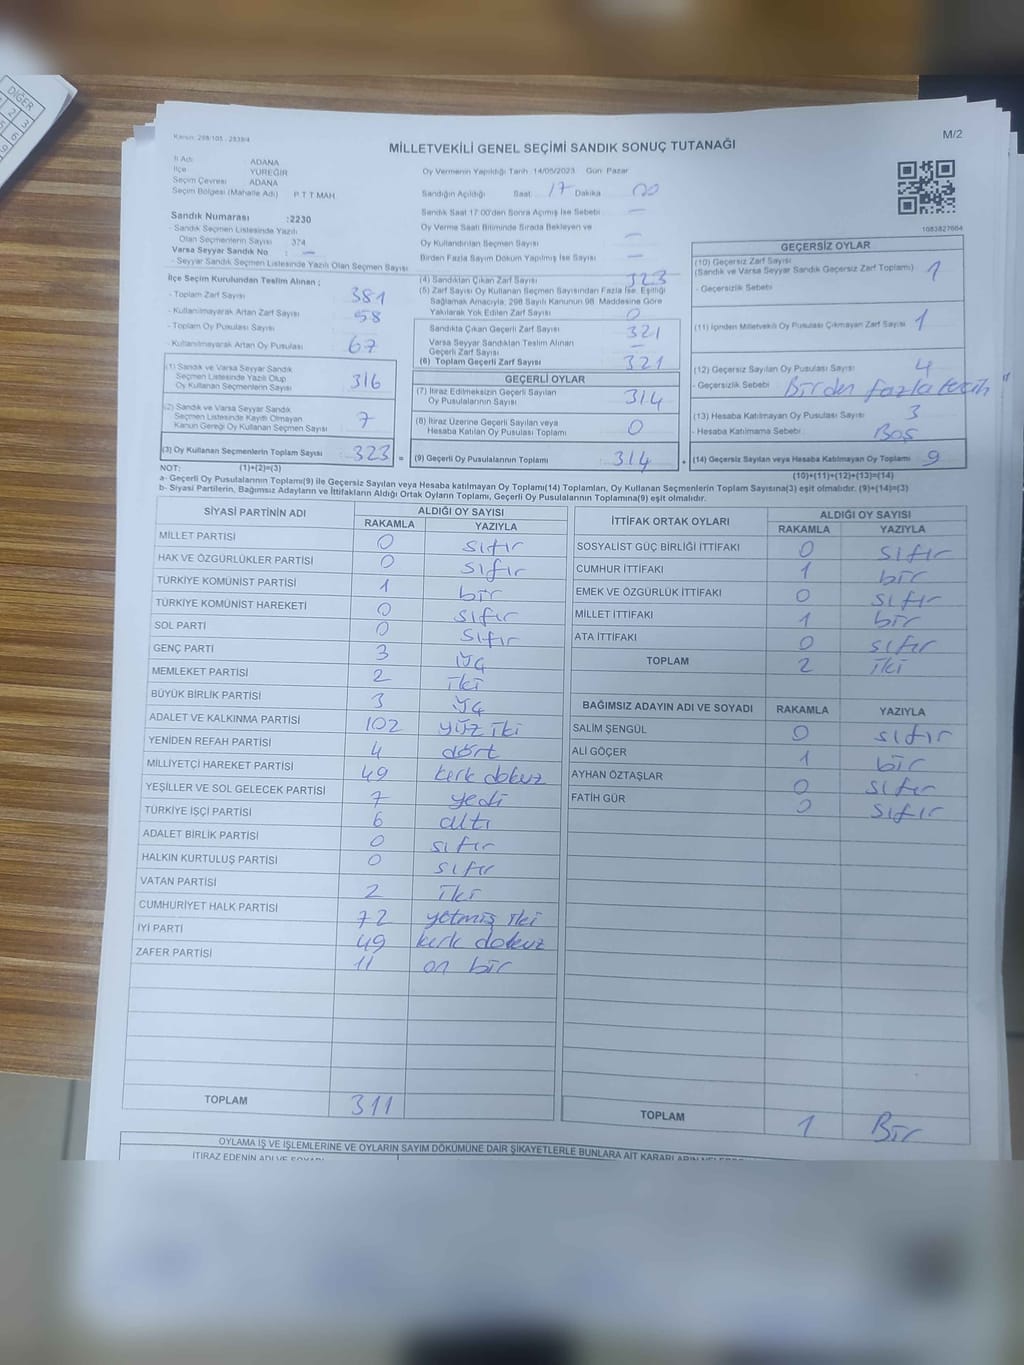 DİĞER
Kanun: 298/105 , 2839/4
M/2
MİLLETVEKİLİ GENEL SEÇİMİ SANDIK SONUÇ TUTANAĞI
İl Adı : ADANA
İlçe : YÜREĞİR
Seçim Çevresi : ADANA
Seçim Bölgesi (Mahalle Adı) : P T T MAH.
Sandık Numarası :2230
- Sandık Seçmen Listesinde Yazılı
Olan Seçmenlerin Sayısı : 374
Varsa Seyyar Sandık No : —
- Seyyar Sandık Listesinde Yazılı Olan Seçmen Sayısı
Oy Vermenin Yapıldığı Tarih :14/05/2023 Gün: Pazar
Sandığın Açıldığı Saat: 17 Dakika 00
Sandık Saat 17:00'den Sonra Açımış İse Sebebi —
Oy Verme Saati Bitiminde Sırada Bekleyen ve
Oy Kullandırılan Seçmen Sayısı —
Birden Fazla Sayım Döküm Yapılmış İse Sayısı —
1083827664
İlçe Seçim Kurulundan Teslim Alınan ;
- Toplam Zarf Sayısı : 381
- Kullanılmayarak Artan Zarf Sayısı : 58
- Toplam Oy Pusulası Sayısı :
- Kullanılmayarak Artan Oy Pusulası : 67
(1) Sandık ve Varsa Seyyar Sandık
Seçmen Listesinde Yazılı Olup
Oy Kullanan Seçmenlerin Sayısı : 316
(2) Sandık ve Varsa Seyyar Sandık
Seçmen Listesinde Kayıtlı Olmayan
Kanun Gereği Oy Kullanan Seçmen Sayısı : 7
(3) Oy Kullanan Seçmenlerin Toplam Sayısı : 323 =
(4) Sandıktan Çıkan Zarf Sayısı : 323
(5) Zarf Sayısı Oy Kullanan Seçmen Sayısından Fazla İse, Eşitliği
Sağlamak Amacıyla, 298 Sayılı Kanunun 98. Maddesine Göre
Yakılarak Yok Edilen Zarf Sayısı : 0
Sandıkta Çıkan Geçerli Zarf Sayısı : 321
Varsa Seyyar Sandıktan Teslim Alınan
Geçerli Zarf Sayısı : —
(6) Toplam Geçerli Zarf Sayısı : 321
GEÇERLİ OYLAR
(7) İtiraz Edilmeksizin Geçerli Sayılan
Oy Pusulalarının Sayısı : 314
(8) İtiraz Üzerine Geçerli Sayılan veya
Hesaba Katılan Oy Pusulası Toplamı : 0
(9) Geçerli Oy Pusulalarının Toplamı : 314 +
GEÇERSİZ OYLAR
(10) Geçersiz Zarf Sayısı
(Sandık ve Varsa Seyyar Sandık Geçersiz Zarf Toplamı) : 1
- Geçersizlik Sebebi :
(11) İçinden Milletvekili Oy Pusulası Çıkmayan Zarf Sayısı : 1
(12) Geçersiz Sayılan Oy Pusulası Sayısı : 4
- Geçersizlik Sebebi : Birden fazla tercih
(13) Hesaba Katılmayan Oy Pusulası Sayısı : 3
- Hesaba Katılmama Sebebi : Boş
(14) Geçersiz Sayılan veya Hesaba Katılmayan Oy Toplamı : 9
NOT: (1)+(2)=(3)
(10)+(11)+(12)+(13)=(14)
a- Geçerli Oy Pusulalarının Toplamı(9) ile Geçersiz Sayılan veya Hesaba katılmayan Oy Toplamı(14) Toplamları, Oy Kullanan Seçmenlerin Toplam Sayısına(3) eşit olmalıdır. (9)+(14)=(3)
b- Siyasi Partilerin, Bağımsız Adayların ve İttifakların Aldığı Ortak Oyların Toplamı, Geçerli Oy Pusulalarının Toplamına(9) eşit olmalıdır.
SİYASİ PARTİNİN ADI ALDIĞI OY SAYISI
RAKAMLA YAZIYLA
MİLLET PARTİSİ 0 sıfır
HAK VE ÖZGÜRLÜKLER PARTİSİ 0 sıfır
TÜRKİYE KOMÜNİST PARTİSİ 1 bir
TÜRKİYE KOMÜNİST HAREKETİ 0 sıfır
SOL PARTİ 0 sıfır
GENÇ PARTİ 3 üç
MEMLEKET PARTİSİ 2 iki
BÜYÜK BİRLİK PARTİSİ 3 üç
ADALET VE KALKINMA PARTİSİ 102 yüz iki
YENİDEN REFAH PARTİSİ 4 dört
MİLLİYETÇİ HAREKET PARTİSİ 49 kırk dokuz
YEŞİLLER VE SOL GELECEK PARTİSİ 7 yedi
TÜRKİYE İŞÇİ PARTİSİ 6 altı
ADALET BİRLİK PARTİSİ 0 sıfır
HALKIN KURTULUŞ PARTİSİ 0 sıfır
VATAN PARTİSİ 2 iki
CUMHURİYET HALK PARTİSİ 72 yetmiş iki
İYİ PARTİ 49 kırk dokuz
ZAFER PARTİSİ 11 on bir
TOPLAM 311
İTTİFAK ORTAK OYLARI ALDIĞI OY SAYISI
RAKAMLA YAZIYLA
SOSYALİST GÜÇ BİRLİĞİ İTTİFAKI 0 sıfır
CUMHUR İTTİFAKI 1 bir
EMEK VE ÖZGÜRLÜK İTTİFAKI 0 sıfır
MİLLET İTTİFAKI 1 bir
ATA İTTİFAKI 0 sıfır
TOPLAM 2 iki
BAĞIMSIZ ADAYIN ADI VE SOYADI RAKAMLA YAZIYLA
SALİM ŞENGÜL 0 sıfır
ALİ GÖÇER 1 bir
AYHAN ÖZTAŞLAR 0 sıfır
FATİH GÜR 0 sıfır
TOPLAM 1 Bir
OYLAMA İŞ VE İŞLEMLERİNE VE OYLARIN SAYIM DÖKÜMÜNE DAİR ŞİKAYETLERLE BUNLARA AİT KARARLARIN
İTİRAZ EDENİN ADI VE SOYADI